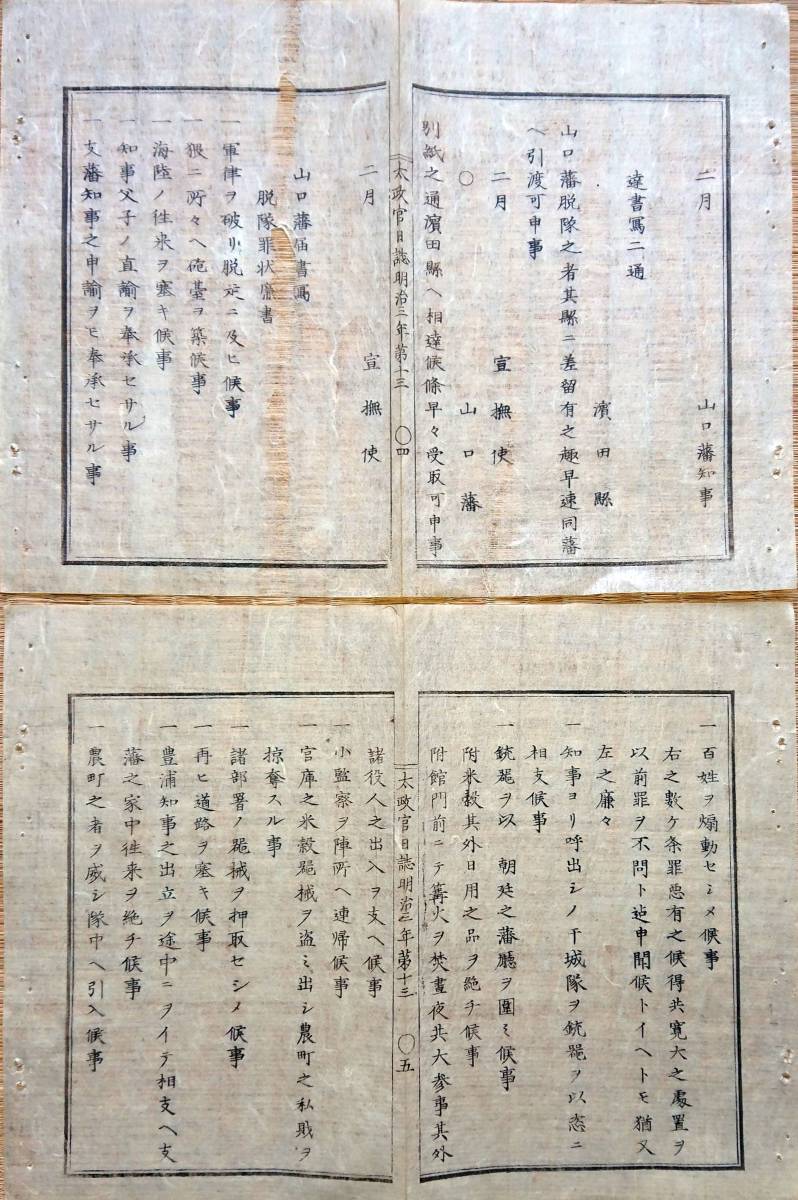 二月　山口藩知事
達書寫二通
濱田縣
山口藩脱隊之者其縣ニ差留有之趣早速同藩
ヘ引渡可申事
二月　宣撫使
○　山口藩
別紙之通濱田縣ヘ相達候條早々受取可申事
太政官日誌明治三年第十三　○四
二月　宣撫使
山口藩届書寫
脱隊罪状廉書
一軍律ヲ破リ脱走ニ及ヒ候事
一猥ニ所々ヘ砲臺ヲ築候事
一海陸ノ徃来ヲ塞キ候事
一知事父子ノ直諭ヲ奉承セサル事
一支藩知事之申諭ヲモ奉承セサル事
一百姓ヲ煽動セシメ候事
右之數ケ条罪惡有之候得共寛大之處置ヲ
以前罪ヲ不問ト迠申聞候トイヘトモ猶又
左之廉々
一知事ヨリ呼出シノ干城隊ヲ銃器ヲ以恣ニ
相支候事
一銃器ヲ以　朝廷之藩廳ヲ圍ミ候事
附米穀其外日用之品ヲ絶チ候事
附館門前ニテ篝火ヲ焚晝夜共大參事其外
太政官日誌明治三年第十三　○五
諸役人之出入ヲ支ヘ候事
一小監察ヲ陣所ヘ連帰候事
一官庫之米穀器械ヲ盗ミ出シ農町之私財ヲ
掠奪スル事
一諸部署ノ器械ヲ押取セシメ候事
一再ヒ道路ヲ塞キ候事
一豊浦知事之出立ヲ途中ニヲイテ相支ヘ支
藩之家中徃来ヲ絶チ候事
一農町之者ヲ威シ隊中ヘ引入候事